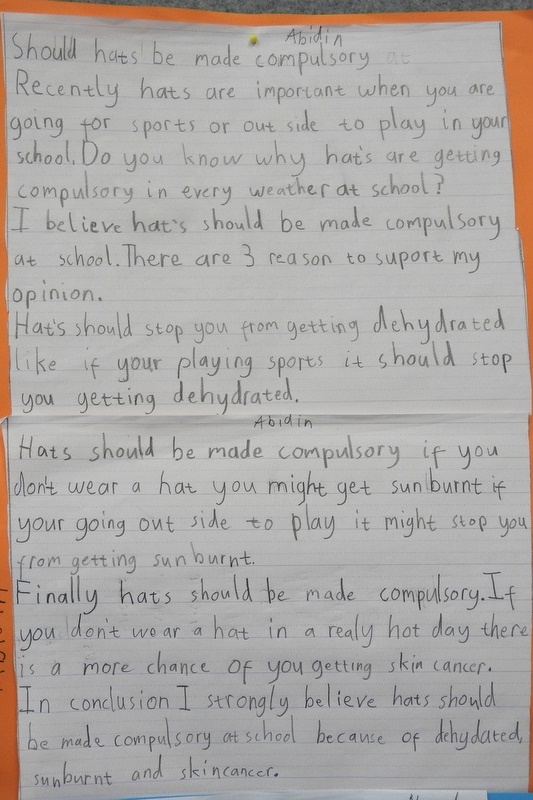 Abidin
Should hats be made compulsory at
Recently hats are important when you are
going for sports or out side to play in your
school. Do you know why hat's are getting
compulsory in every weather at school?
I believe hat's should be made compulsory
at school. There are 3 reason to suport my
opinion.
Hat's should stop you from getting dehydrated
like if your playing sports it should stop
you getting dehydrated.
Abidin
Hats should be made compulsory if you
don't wear a hat you might get sunburnt if
your going out side to play it might stop you
from getting sunburnt.
Finally hats should be made compulsory. If
you don't wear a hat in a realy hot day there
is a more chance of you getting skin cancer.
In conclusion I strongly believe hats should
be made compulsory at school because of dehydrated,
sunburnt and skincancer.